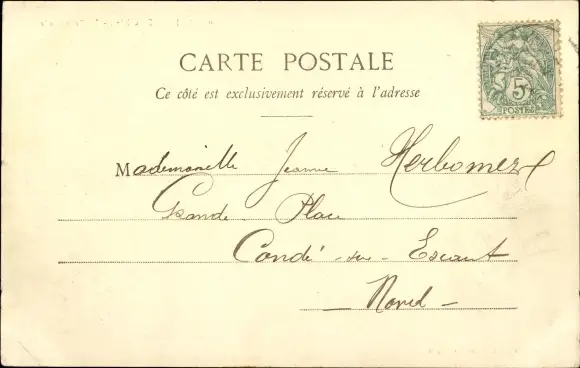 CARTE POSTALE
Ce côté est exclusivement réservé à l'adresse
5c
POSTES
Mademoiselle Jeanne Herbomez
Grande Place
Condé-sur-Escaut
— Nord —